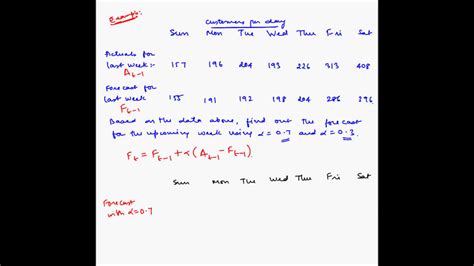 Example:-
Customers per day
Sun Mon Tue Wed Thu Fri Sat
Actuals for
last week:- 157 196 204 193 226 313 408
A t-1
Forecast for
last week 155 191 192 198 204 286 396
F t-1
Based on the data above, find out the forecast
for the upcoming week using α = 0.7 and α = 0.3.
F t = F t-1 + α (A t-1 - F t-1)
Sun Mon Tue Wed Thu Fri Sat
Forecast
with α=0.7